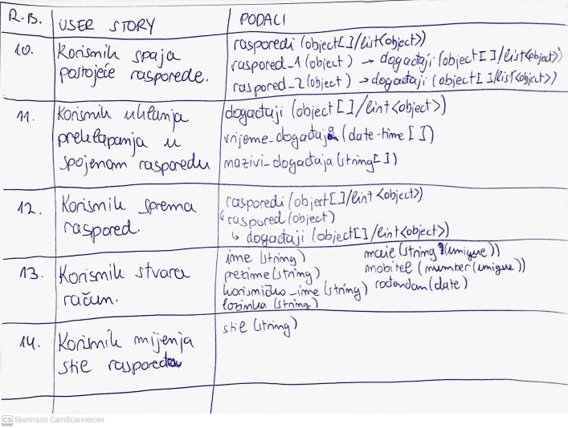 R.B. USER STORY PODACI
10. Korisnik spaja postojeće rasporede.
rasporedi (object[]/list<object>)
raspored_1 (object) → događaji (object[]/list<object>)
raspored_2 (object) → događaji (object[]/list<object>)
11. Korisnik uklanja
preklapanja u
spojenom rasporedu
događaji (object[]/list<object>)
vrijeme_događaja (date-time[])
nazivi_događaja (string[])
12. Korisnik sprema
raspored.
rasporedi (object[]/list<object>)
↳ raspored (object)
↳ događaji (object[]/list<object>)
13. Korisnik stvara
račun.
ime (string)
prezime (string)
korisničko_ime (string)
lozinka (string)
mail (string (unique))
mobitel (number (unique))
rođendan (date)
14. Korisnik mijenja
stil rasporeda
stil (string)
CS Skenirano CamScannerom